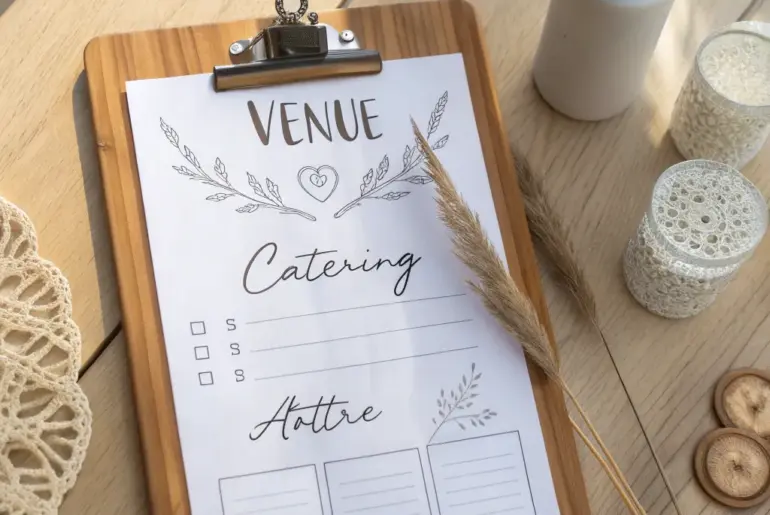 VENUE
Catering
S
S
S
Hottre